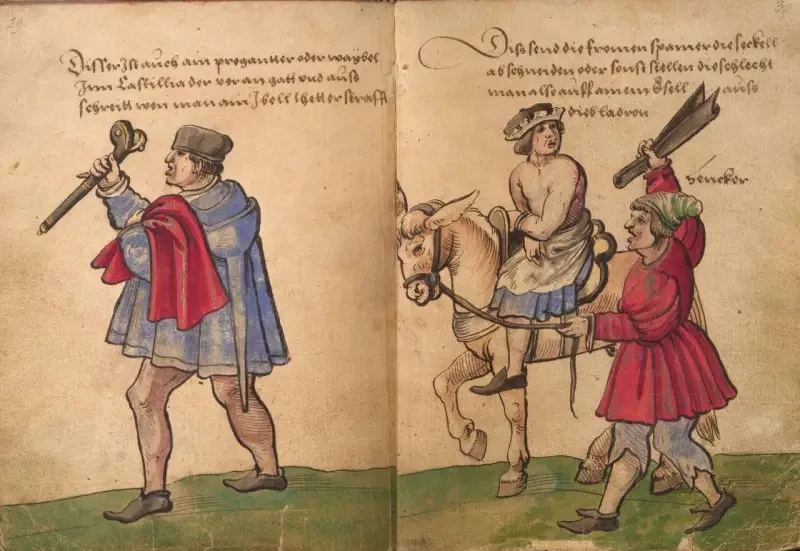 29
Disser Ist auch ain progantter oder waybel
Inn Castillia der vor an gatt vnd auss
schreitt wen man am Ibell thetter strafft
30
Diss send die fromen spamer die seckell
ab schneiden oder sonst stellen die schlecht
man also auff ainem Esell auss
dieb ladron
hencker